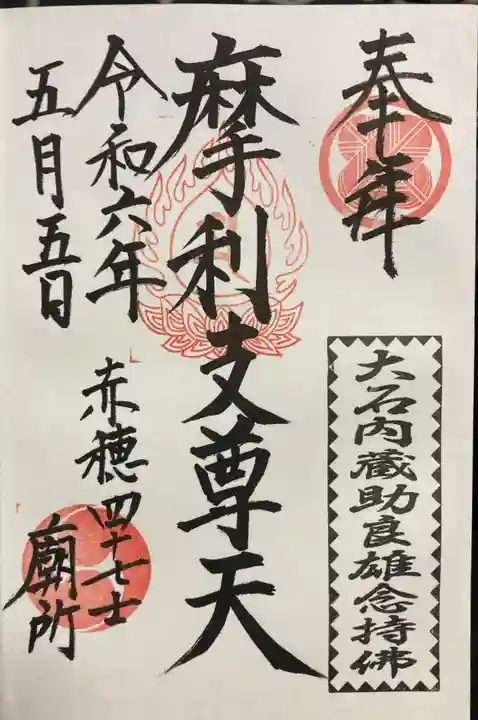 奉拝
大石内蔵助良雄念持佛
摩利支尊天
令和六年
五月五日
赤穂四十七士
廟所